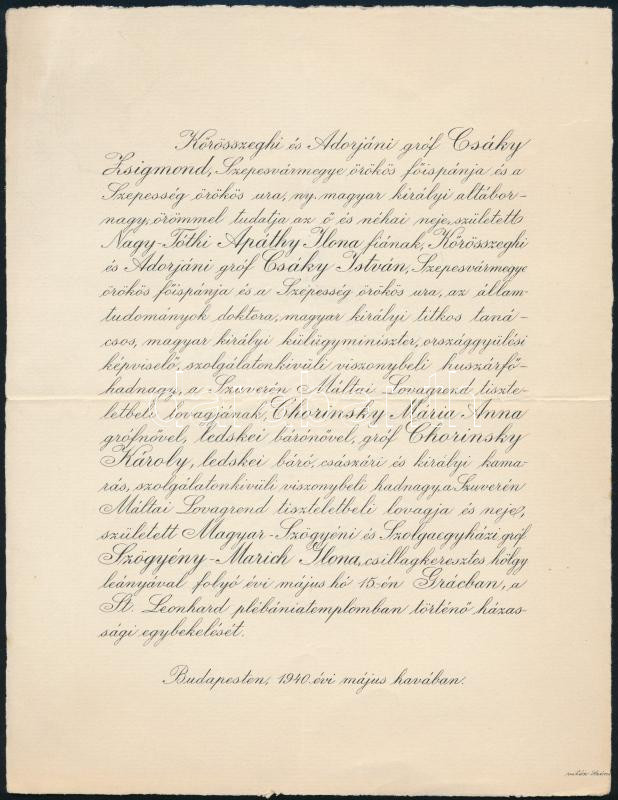 Kőrösszeghi és Adorjáni gróf Csáky
Zsigmond, Szepesvármegye örökös főispánja és a
Szepesség örökös ura, ny. magyar királyi altábor-
nagy, örömmel tudatja az ő és néhai neje, született
Nagy-Tóthi Apáthy Ilona fiának, Kőrösszeghi
és Adorjáni gróf Csáky István, Szepesvármegye
örökös főispánja és a Szepesség örökös ura, az állam-
tudományok doktora, magyar királyi titkos taná-
csos, magyar királyi külügyminiszter, országgyülési
képviselő, szolgálatonkivüli viszonybeli huszárfő-
hadnagy, a Szuverén Máltai Lovagrend tiszte-
letbeli lovagjának, Chorinsky Mária Anna
grófnővel, ledskei bárónővel, gróf Chorinsky
Károly, ledskei báró, császári és királyi kama-
rás, szolgálatonkivüli viszonybeli hadnagy, a Szuverén
Máltai Lovagrend tiszteletbeli lovagja és neje,
született Magyar-Szögyéni és Szolgaegyházi gróf
Szögyény-Marich Ilona, csillagkeresztes hölgy
leányával folyó évi május hó 15-én Grácban, a
St. Leonhard plébániatemplomban történő házas-
sági egybekelését.
Budapesten, 1940. évi május havában.